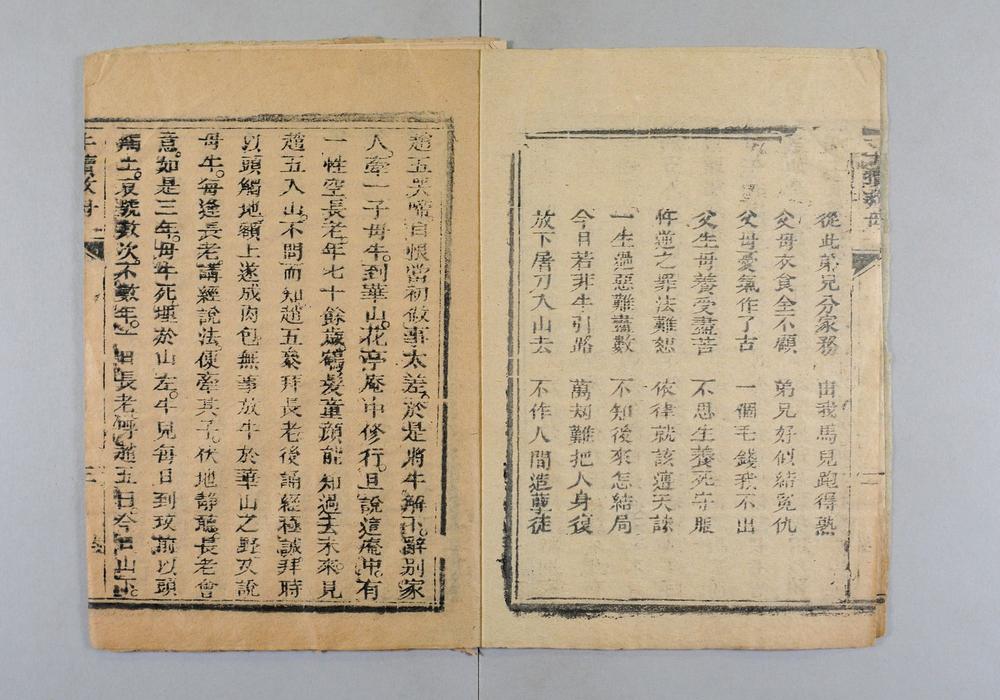 從此弟兄分家務 由我馬兒跑得熟
父母衣食全不顧 弟兄好似結冤仇
父母憂氣作了古 一個毛錢我不出
父生母養受盡苦 不思生養死守服
忤逆之罪法難恕 依律就該遭天誅
一生過惡難盡數 不知後來怎結局
今日若非牛引路 萬刼難把人身復
放下屠刀入山去 不作人間造孽徒
趙五哭啼自恨當初做事太差於是將牛解下。辭別家
人。牽一子母牛。到華山。花亭庵中修行。且說這庵中。有
一性空長老年七十餘歲。鶴髮童顏能知過去未來見
趙五入山。不問而知趙五叅拜長老後誦經極誠拜時
以頭觸地額上遂成肉包無事放牛於華山之野及說
母牛。每逢長老講經說法。便牽其子。伏地靜聽。長老會
意。如是三年。母牛死埋於山左。牛兒每日到坟前以頭
觸土。哀號數次不數年。一日長老呼趙五曰今日山下。